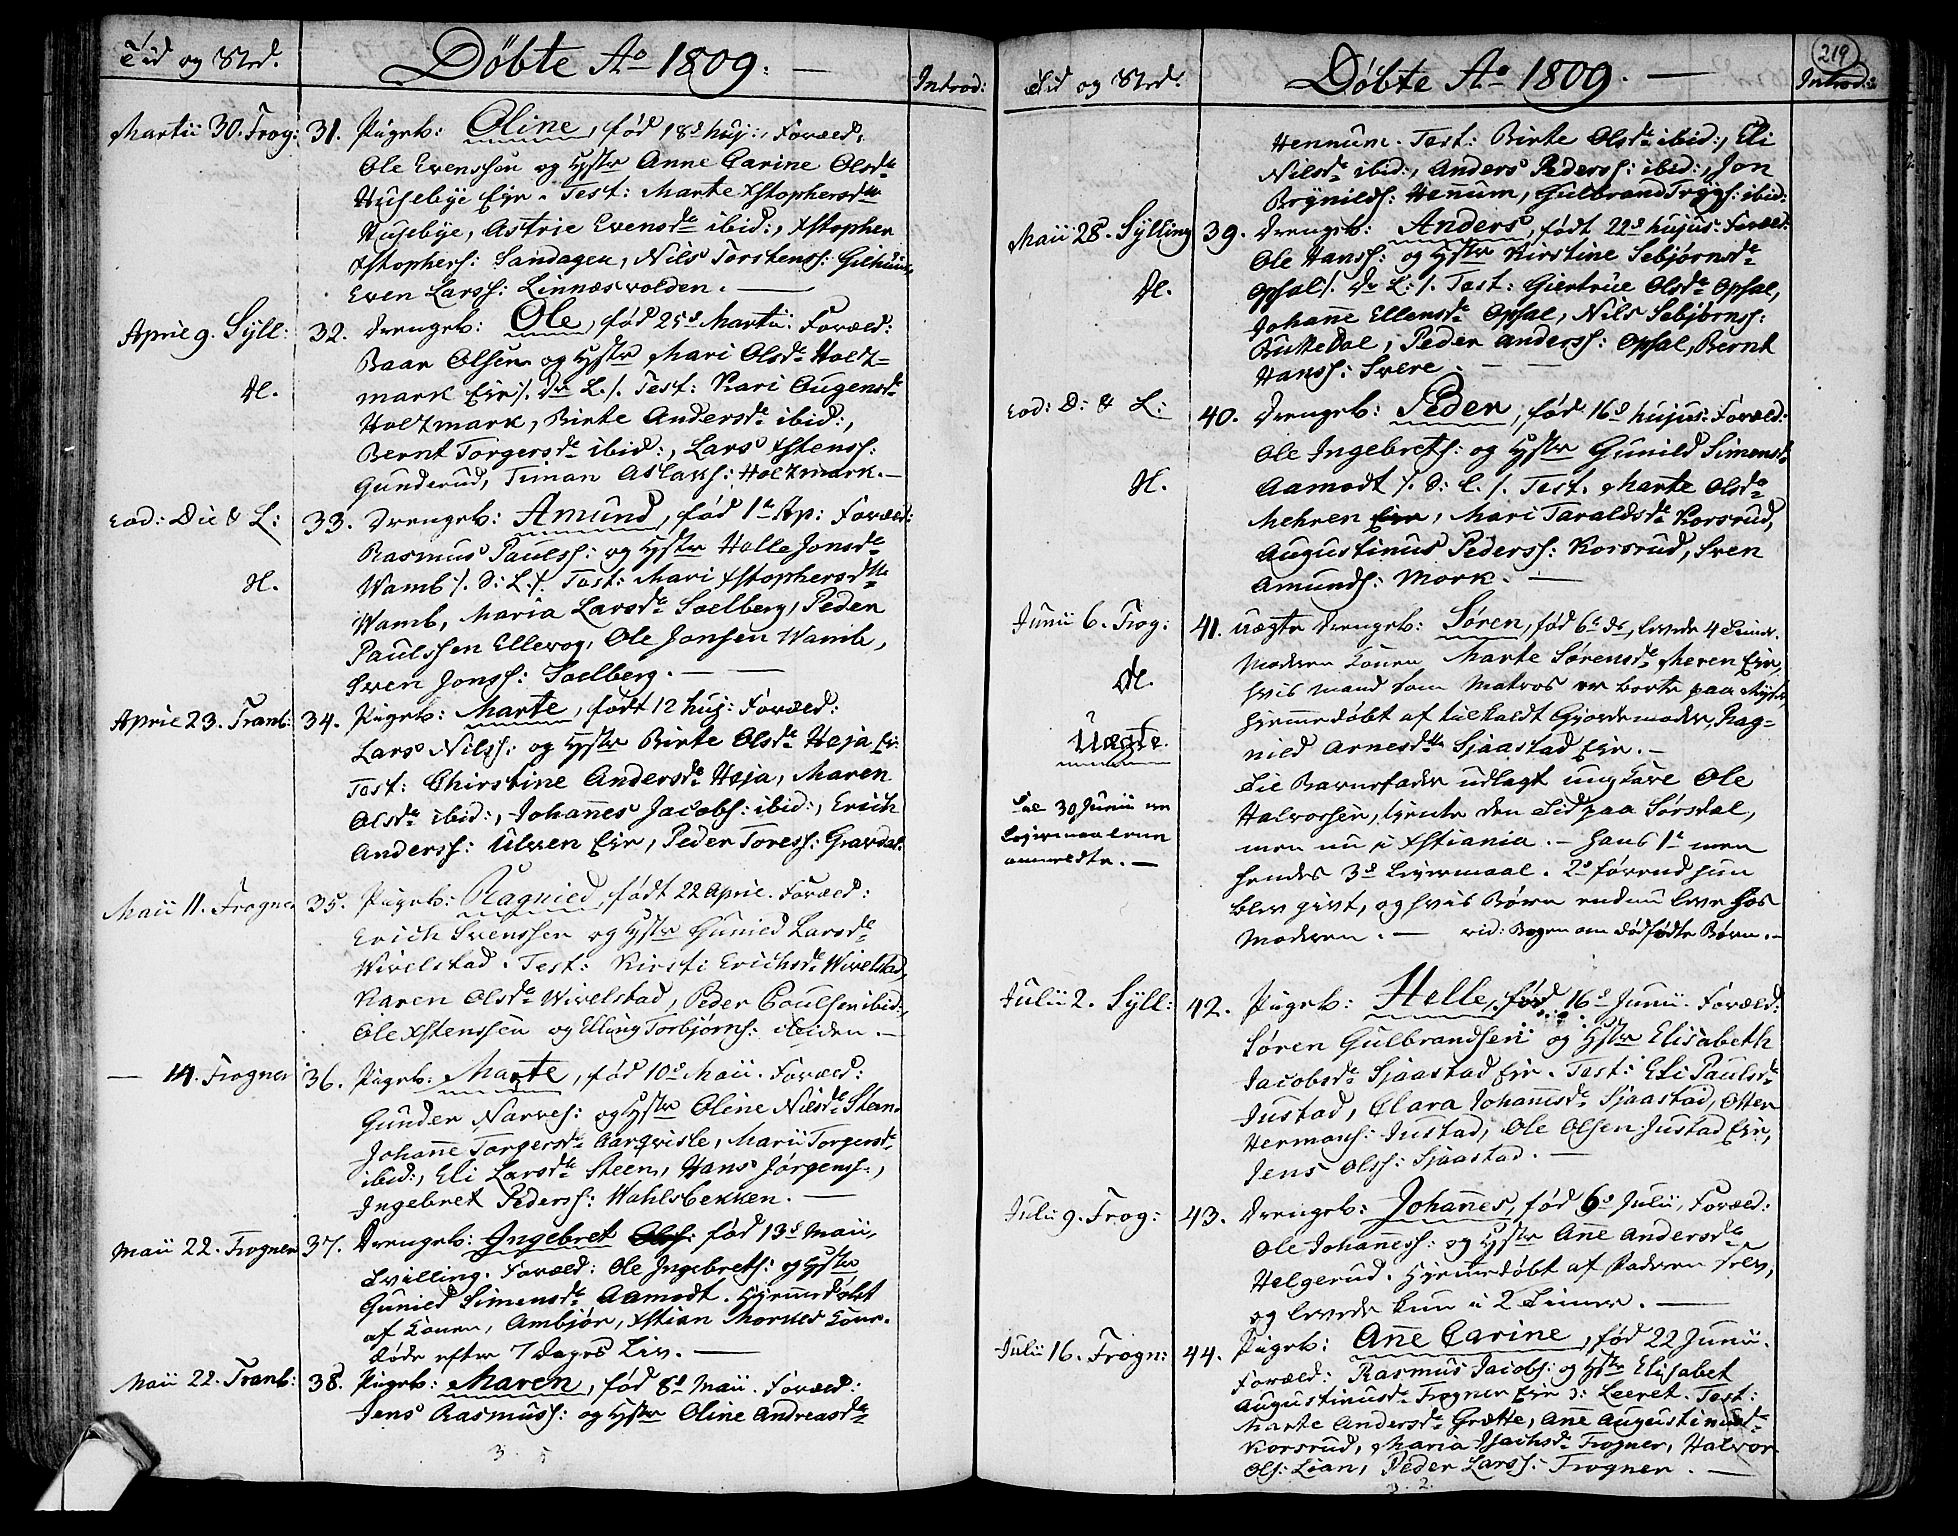 Tid og Sted.
Døbte Ao 1809.
Introd:
Martii 30. Frog:
31. Pigeb: Oline, fød 18d huj:, Foræld:
Ole Evenssøn og Hstr Anne Carine Olsdr
Husebye Eie. Test: Marte Xstophersdtr
Husebye, Astrie Evensdr ibid:, Xstopher
Xstophers: Sandagen, Nils Torstens: Gilhuus
Even Larss: Linnæsvolden.
Aprill 9. Syll:
32. Drengeb: Ole, fød 25d Martii. Foræld:
Baar Olsen og Hstr Mari Olsdr Holt-
mark Eie /. D. L. /. Test: Kari Augensdr
Holtmark, Birte Andersdr ibid:,
Bernt Torgersdr ibid:, Lars Xstenss:
Gunderud, Timan Aslaks: Holtmark.
H.
Eod: Die & L:
33. Drengeb: Amund, fød 1te Ap: Foræld:
Rasmus Paulss: og Hstr Helle Jonsdr
Wamb /. D: L: /. Test: Mari Xstophersdtr
Wamb, Maria Larsdr Solberg, Peder
Paulssen Ellevog, Ole Jonsen Wamb,
Sven Jonss: Solberg.
H.
Aprill 23. Tranb:
34. Pigeb: Marte, født 12 huj: Foræld:
Lars Nilss: og Hstr Birte Olsdr Heja Ei:
Test: Chirstine Andersdr Heja, Maren
Olsdr ibid:, Johanes Jacobs: ibid:, Erich
Anderss: Ulven Eie, Peder Toress: Gravdal.
Maii 11. Frogner
35. Pigeb: Ragnild, født 22 April. Foræld:
Erich Svenssen og Hstr Gunild Larsdr
Wivelstad. Test: Kirsti Erichsdr Wivelstad,
Karen Olsdr Wivelstad, Peder Poulsen ibid:,
Ole Xstenssen og Elling Torbjørns: ibidem.
— 14. Frogner
36. Pigeb: Marte, fød 10d Maii. Foræld:
Gunder Narves: og Hstr Oline Nilsdr Steen.
Johane Torgersdr Aarqvisle, Marii Torgersdr
ibid:, Eli Larsdr Steen, Hans Jørgenss:,
Ingebret Pederss: Wahlsbekken.
Maii 22. Frogner
37. Drengeb: Ingebret Ols: fød 13d Maii,
Tvilling. Foræld: Ole Ingebrets: og Hstr
Gunild Simensdr Aamodt. Hjemedøbt
af Konen, Ambjør, Xstian Morkes Kone.
døde efter 7 Dages Liv.
Maii 22. Tranb:
38. Pigeb: Maren, fød 8d Maii. Foræld:
Jens Rasmuss: og Hstr Oline Andreasdr
3.
Tid og Sted.
Døbte Ao 1809.
219
Introd:
Hennum. Test: Birte Olsdr ibid:, Eli
Nilsdr ibid:, Anders Pederss: ibid:, Jon
Brynilds: Henum, Gulbrand Trygs: ibid:
Maii 28. Sylling
39. Drengeb: Anders, født 22d hujus. Foræld:
Ole Hanss: og Hstr Kirstine Sebjørnsdr
Opsal /. D. L: /. Test: Giertrue Olsdr Opsal,
Johane Ellensdr Opsal, Nils Sebjørns:
Buttedal, Peder Anderss: Opsal, Bernt
Hanss: Svere.
H.
Eod: D: & L:
40. Drengeb: Peder, fød 16d hujus. Foræld:
Ole Ingebrets: og Hstr Gunild Simensdr
Aamodt /. D: L. /. Test. Marte Olsdr
Mehren Eie, Mari Taraldsdr Korsrud,
Augustinus Pederss: Korsrud, Sven
Amunds: Mork.
H.
Junii 6. Frog:
41. Uægte Drengeb: Søren, fød 6te ds, levede 4 Timer.
Moderen Konen Marte Sørensdr Meren Eie,
hvis Mand som Matros er borte paa
Hjemmedøbt af tilkaldt Gjordemoder, Rag-
nild Arnesdtr Sjaastad Eie.
Til Barnefader udlagt ungkarl Ole
Halvorsen, tjente den Tid paa Sørsdal,
men nu i Xstiania. — Hans 1te men
hendes 3d Leiermaal. 2d førend hun
blev givt, og hvis Børn endnu leve hos
Moderen. — vid: Bogen om dødfødte Børn.
H.
Uægte.
30 Junii er
Leiermaalene
anmeldte.
Julii 2. Syll:
42. Pigeb: Helle, fød 16d Junii. Foræld:
Søren Gulbrandsen og Hstr Elisabeth
Jacobsdr Sjaastad Eie. Test: Eli Paulsdr
Justad, Clara Johanesdr Sjaastad, Otter
Hermans: Justad, Ole Olsen Justad Eie,
Jens Olss: Sjaastad.
Julii 9. Frog:
43. Drengeb: Johanes, fød 6d Julii, Foræld:
Ole Johaness: og Hstr Ane Andersdr
Helgerud. Hjemedøbt af Faderen selv,
og levede kun i 2 Timer.
Julii 16. Frogn:
44. Pigeb: Ane Carine, fød 22 Junii.
Foræld: Rasmus Jacobs: og Hstr Elisabet
Augustinusdr Frogner Eie ɔ: Leeret. Test:
Marte Andersdr Grætte, Ane Augustinusdr
Korsrud, Maria Isachsdr Frogner, Halvor
Ols: Lian, Peder Larss: Frogner.